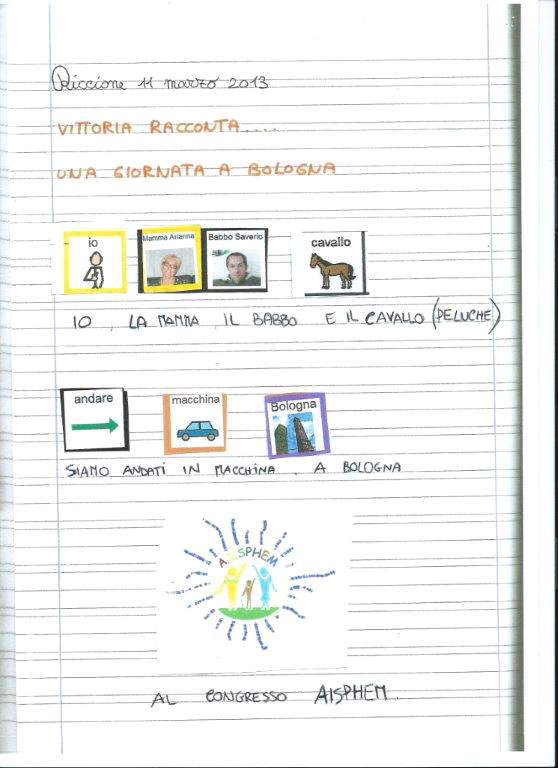 Riccione 11 marzo 2013
VITTORIA RACCONTA....
UNA GIORNATA A BOLOGNA
io Mamma Arianna Babbo Saverio cavallo
IO , LA MAMMA , IL BABBO E IL CAVALLO (PELUCHE)
andare macchina Bologna
SIAMO ANDATI IN MACCHINA . A BOLOGNA
A.I.SPHEM
AL CONGRESSO AISPHEM